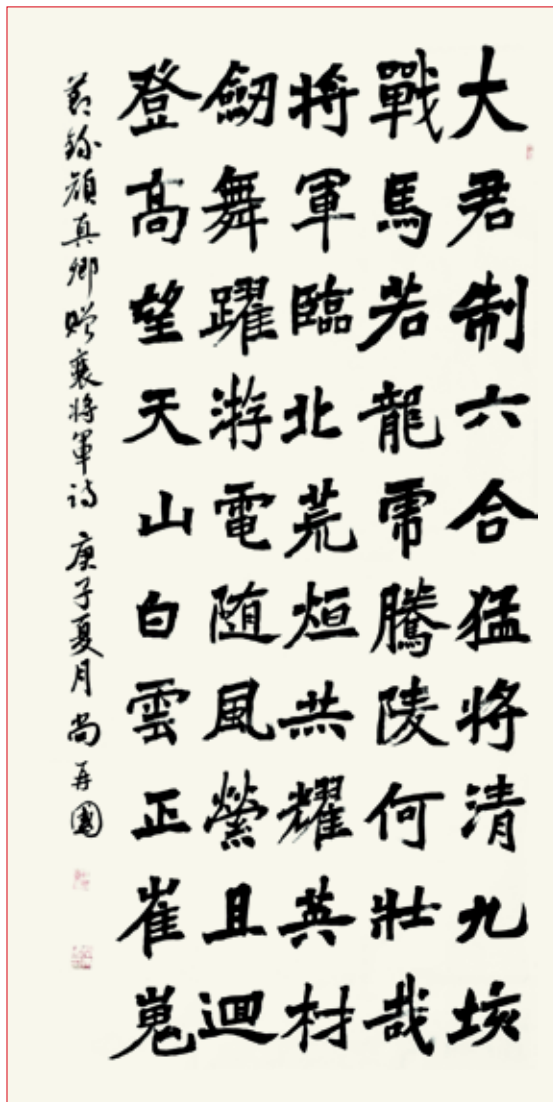 大君制六合猛將清九垓
戰馬若龍虎騰陵何壯哉
将軍臨北荒烜赫耀英材
劒舞躍游電随風縈且迴
登高望天山白雲正崔嵬
節録顔真卿赠裴将軍诗 庚子夏月 尚再國